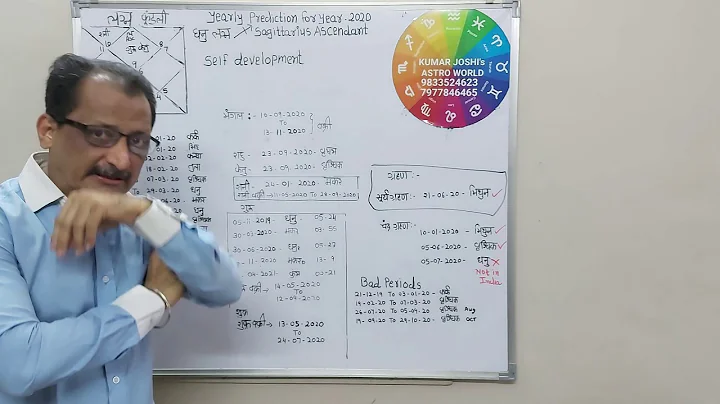 लग्न कुंडली
Yearly Prediction for Year - 2020
धनु लग्न Sagittarius Ascendant
Self development
KUMAR JOSHI's
ASTRO WORLD
9833524623
7977846465
मंगल :- 10-09-2020
TO
13-11-2020
वक्री
राहु - 23-09-2020 - वृषभ
केतु - 23-09-2020 - वृश्चिक
शनी - 24-01-2020 मकर
शनी वक्री - 11-05-2020 TO 28-09-2020
गुरु
05-11-2019 - धनु 05-24
30-03-2020 - मकर 03-55
30-06-2020 धनु 05-27
-11-2020 मकर
कुंभ 00-21
14-05-2020
TO
12-09-2020
शुक्र
शुक्र वक्री → 13-05-2020
TO
24-07-2020
-01-20 कर्क
-01-20
02-02-20 कन्या
18-02-20 तुला
07-03-20 वृश्चिक
TO 29-03-20 धनु
-20 मकर
ग्रहण :-
सूर्यग्रहण :- 21-06-20 - मिथुन ✓
चंद्र ग्रहण :-
10-01-2020 - मिथुन ✓
05-06-2020 - वृश्चिक ✓
05-07-2020 - धनु ✗
Not in
India
Bad Periods
21-12-19 TO 03-01-20 -
19-02-20 TO 07-03-20 - वृश्चिक
26-07-20 TO 05-09-20 - वृश्चिक Aug
19-09-20 TO 29-10-20 - वृश्चिक OCT